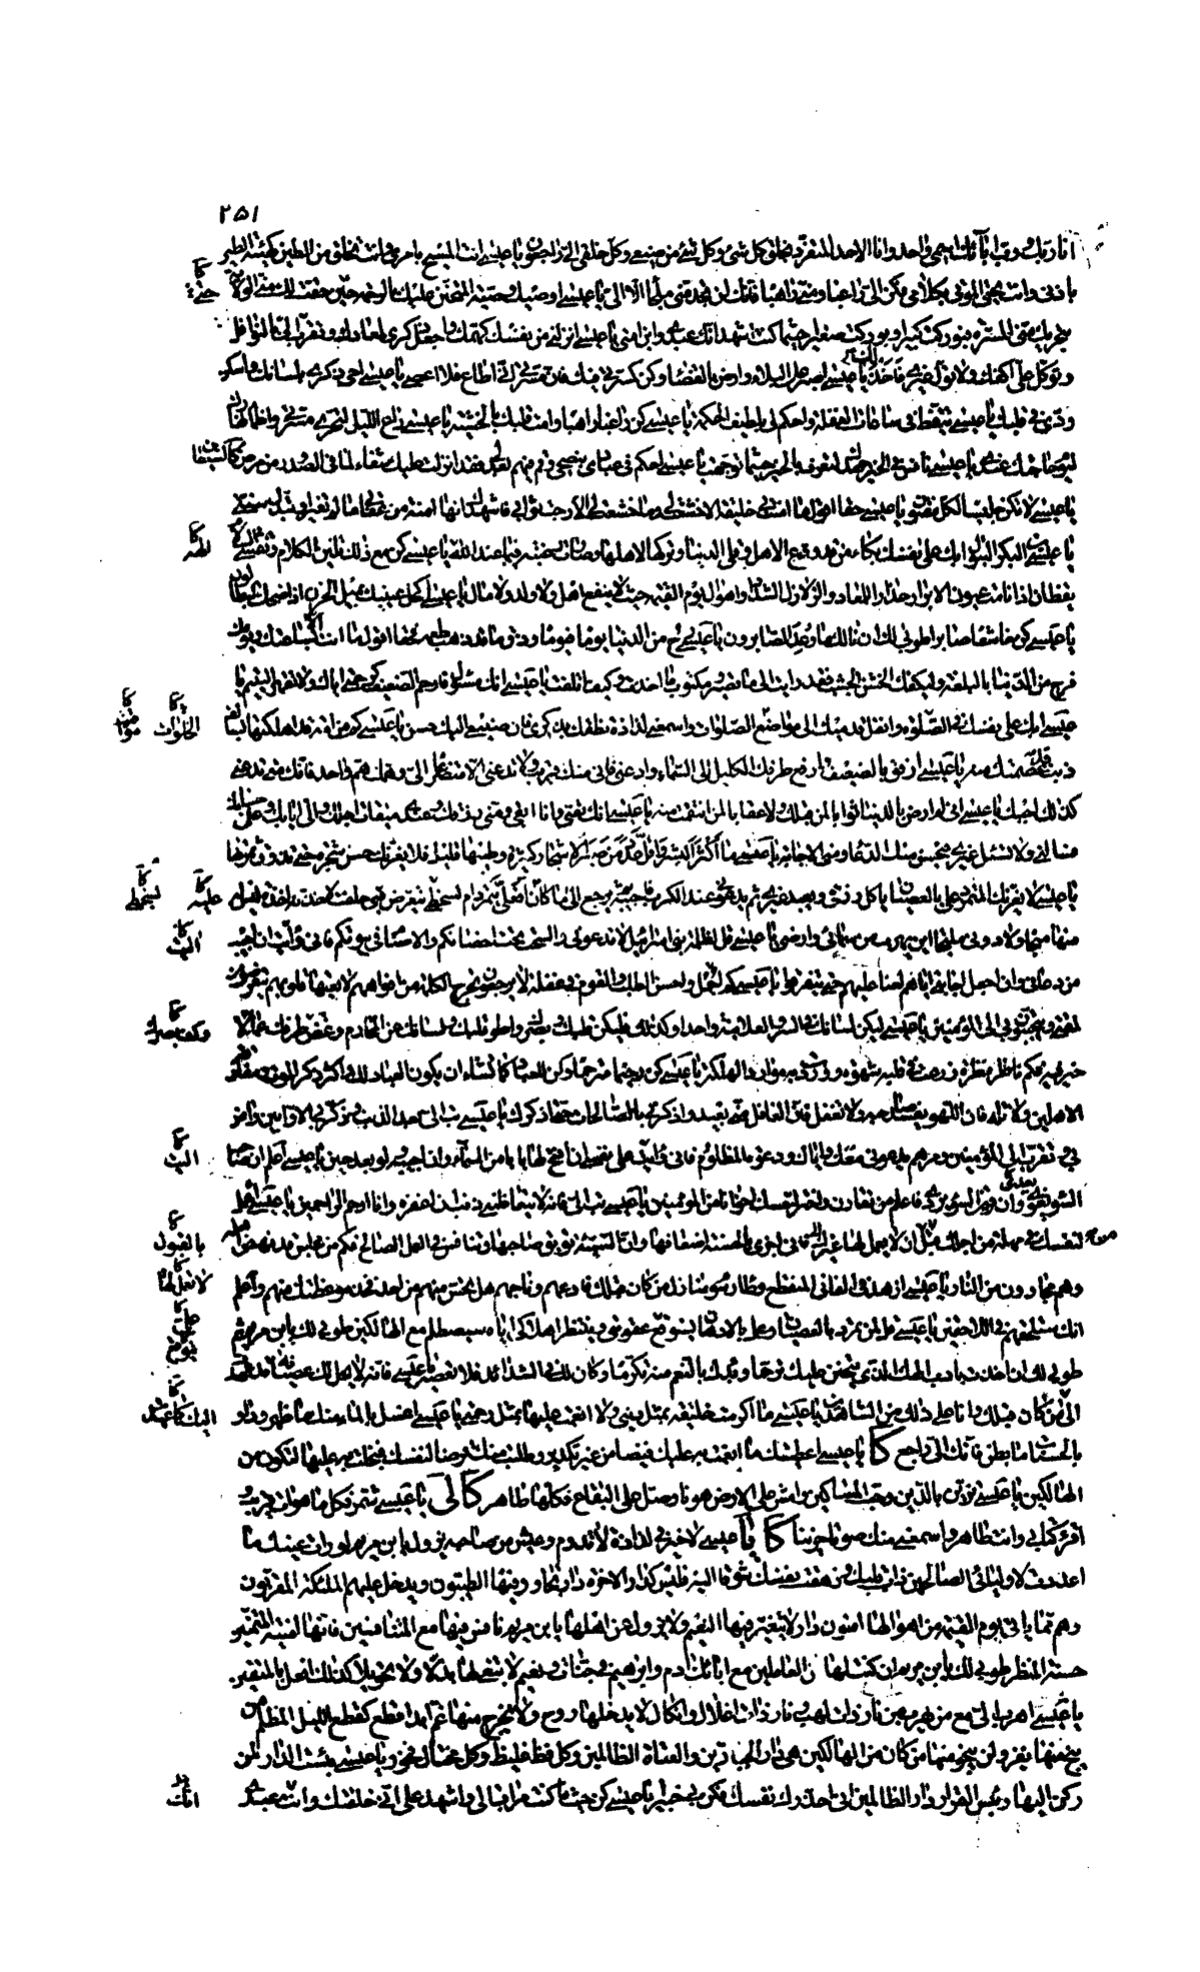 ۲۵۱
انا ربك ورب آبائك اسمي واحد وانا الاحد المتفرد بخلق كل شئ وكل شئ من صنعي وكل خلقي الي راجعون يا عيسى انت المسيح بامري وانت تخلق من الطين كهيئة الطير
باذني وانت تحيي الموتى بكلامي فكن الي راغبا ومني راهبا فانك لن تجد مني ملجأ الا الي يا عيسى اوصيك وصية المتحنن عليك بالرحمة حين حقت لك مني الولاية
بتحريك مني المسرة فبوركت كبيرا وبوركت صغيرا حيثما كنت اشهد انك عبدي وابن امتي يا عيسى انزلني من نفسك كهمك واجعل ذكري لمعادك وتقرب الي بالنوافل
وتوكل علي اكفك ولا تول غيري فاخذلك يا عيسى اصبر على البلاء وارض بالقضاء وكن كمسرتي فيك فان مسرتي ان اطاع فلا اعصى يا عيسى احي ذكري بلسانك وليكن
ودي في قلبك يا عيسى تيقظ في ساعات الغفلة واحكم لي بلطيف الحكمة يا عيسى كن راغبا راهبا وامت قلبك بالخشية يا عيسى راع الليل لتحري مسرتي واظمأ نهارك
ليوم حاجتك عندي يا عيسى نافس في الخير جهدك لتعرف بالخير حيثما توجهت يا عيسى احكم في عبادي بنصحي وقم فيهم بعدلي فقد انزلت عليك شفاء لما في الصدور من مرض الشيطان
يا عيسى لا تكن جليسا لكل مفتون يا عيسى حقا اقول ما امنت بي خليقة الا خشعت لي وما خشعت لي الا رجت ثوابي فاشهدك انها امنة من عقابي ما لم تغير او تبدل سنتي
يا عيسى ابن البكر البتول ابك على نفسك بكاء من قد ودع الاهل وقلى الدنيا وتركها لاهلها وصارت رغبته فيما عند الله يا عيسى كن مع ذلك تلين الكلام وتفشي السلام
يقظان اذا نامت عيون الابرار حذارا للمعاد والزلازل الشداد واهوال يوم القيمة حيث لا ينفع اهل ولا ولد ولا مال يا عيسى اكحل عينيك بميل الحزن اذا ضحك البطالون
يا عيسى كن خاشعا صابرا طوبى لك ان نالك ما وعد الصابرون يا عيسى رح من الدنيا يوما فيوما وذق ما قد ذهب طعمه فحقا اقول ما انت الا بساعتك ويومك
فرح من الدنيا بالبلغة وليكفك الخشن الجشب فقد رايت الى ما تصير ومكتوب ما اخذت وكيف اتلفت يا عيسى انك مسئول فارحم الضعيف كرحمتي اياك ولا تقهر اليتيم يا
عيسى ابك على نفسك في الصلوة وانقل قدميك الى مواضع الصلوات واسمعني لذاذة نطقك بذكري فان صنيعي اليك حسن يا عيسى كم من امة قد اهلكتها بسالف
ذنب قد عصمتك منه يا عيسى ارفق بالضعيف وارفع طرفك الكليل الى السماء وادعني فاني منك قريب ولا تدعني الا متضرعا الي وهمك هم واحد فانك متى تدعني
كذلك اجبك يا عيسى اني لم ارض بالدنيا ثوابا لمن قبلك ولا عقابا لمن انتقمت منه يا عيسى انك تفنى وانا ابقى ومني رزقك وعندي ميقات اجلك والي ايابك وعلي حسابك
فسلني ولا تسئل غيري فيحسن منك الدعاء ومني الاجابة يا عيسى ما اكثر البشر واقل عدد من صبر الاشجار كثيرة وطيبها قليل فلا يغرنك حسن شجرة حتى تذوق ثمرها
يا عيسى لا يغرنك المتمرد علي بالعصيان ياكل رزقي ويعبد غيري ثم يدعوني عند الكرب فاجيبه ثم يرجع الى ما كان عليه افعلي يتمرد ام لسخطي يتعرض فبي حلفت لاخذنه اخذة ليس له
منها منجا ولا دوني ملجأ اين يهرب من سمائي وارضي يا عيسى قل لظلمة بني اسرائيل لا تدعوني والسحت تحت احضانكم والاصنام في بيوتكم فاني وأيت ان اجيب
من دعاني وان اجعل اجابتي اياهم لعنا عليهم حتى يتفرقوا يا عيسى كم اجمل النظر واحسن الطلب والقوم في غفلة لا يرجعون تخرج الكلمة من افواههم لا تعيها قلوبهم يتعرضون
لمقتي ويتحببون بي الى المؤمنين يا عيسى ليكن لسانك في السر والعلانية واحدا وكذلك فليكن قلبك وبصرك واطو قلبك ولسانك عن المحارم وغض طرفك عما لا
خير فيه فكم ناظر نظرة زرعت في قلبه شهوة ووردت به موارد الهلكة يا عيسى كن رحيما مترحما وكن للعباد كما تشاء ان يكون العباد لك واكثر ذكر الموت ومفارقة
الاهلين ولا تله فان اللهو يفسد صاحبه ولا تغفل فان الغافل مني بعيد واذكرني بالصالحات حتى اذكرك يا عيسى تب الي بعد الذنب وذكر بي الاوابين وامن
بي وتقرب الى المؤمنين ومرهم يدعوني معك واياك ودعوة المظلوم فاني وأيت على نفسي ان افتح لها بابا من السماء وان اجيبه ولو بعد حين يا عيسى اعلم ان صاحب
السوء يغوي وان قرين السوء يردي فاعلم من تقارن واختر لنفسك اخوانا من المؤمنين يا عيسى تب الي فانه لا يتعاظمني ذنب ان اغفره وانا ارحم الراحمين يا عيسى اعمل
لنفسك في مهلة من اجلك قبل ان لا يعمل لها غيرك فاني اجزي بالحسنة اضعافها وان السيئة توبق صاحبها وتنافس في العمل الصالح فكم من مجلس قد نهض اهله
وهم مجارون من النار يا عيسى ازهد في الفاني المنقطع وطا رسوم منازل من كان قبلك فادعهم وناجهم هل تحس منهم من احد فخذ موعظتك منهم واعلم
انك ستلحقهم في اللاحقين يا عيسى قل لمن تمرد بالعصيان وعمل بالادهان يتوقع عقوبتي وينتظر اهلاكي اياه سيصطلم مع الهالكين طوبى لك يا بن مريم ثم
طوبى لك ان اخذت بادب الهك الذي يتحنن عليك ترحما وبدأك بالنعم منه تكرما وكان لك في الشدائد فلا تعصه يا عيسى فانه لا يحل لك عصيانه قد عهدت
الى من كان قبلك وانا على ذلك من الشاهدين يا عيسى ما اكرمت خليقة بمثل ديني ولا انعمت عليها بمثل رحمتي يا عيسى اغسل بالماء منك ما ظهر وداو
بالحسنات ما بطن فانك الي راجع كا يا عيسى اعطيتك ما انعمت به عليك فيضا من غير تكدير وطلبت منك قرضا لنفسك فبخلت به عليها لتكون من
الهالكين يا عيسى تزين بالدين وحب المساكين وامش على الارض هونا وصل على البقاع فكلها طاهر كا لي يا عيسى شمر فكل ما هو ات قريب
اقرء كتابي وانت طاهر واسمعني منك صوتا حزينا كا يا عيسى لا خير في لذاذة لا تدوم وعيش من صاحبه يزول يا بن مريم لو رات عينك ما
اعددت لاوليائي الصالحين ذاب قلبك وزهقت نفسك شوقا اليه فليس كدار الاخرة دار تجاور فيها الطيبون ويدخل عليهم الملئكة المقربون
وهم مما ياتي يوم القيمة من اهوالها امنون دار لا يتغير فيها النعيم ولا يزول عن اهلها يا بن مريم نافس فيها مع المتنافسين فانها امنية المتمنين
حسنة المنظر طوبى لك يا بن مريم ان كنت لها من العاملين مع ابائك ادم وابراهيم في جنات ونعيم لا تبغي لها بدلا ولا تحويلا كذلك افعل بالمتقين
يا عيسى اهرب الي مع من يهرب من نار ذات لهب ونار ذات اغلال وانكال لا يدخلها روح ولا يخرج منها غم ابدا قطع كقطع الليل المظلم من
ينج منها يفز ولن ينجو منها من كان من الهالكين هي دار الجبارين والعتاة الظالمين وكل فظ غليظ وكل مختال فخور يا عيسى بئست الدار لمن
ركن اليها وبئس القرار دار الظالمين اني احذرك نفسك فكن بي خبيرا يا عيسى كن حيث ما كنت مراقبا لي واشهد على اني خلقتك وانت عبدي